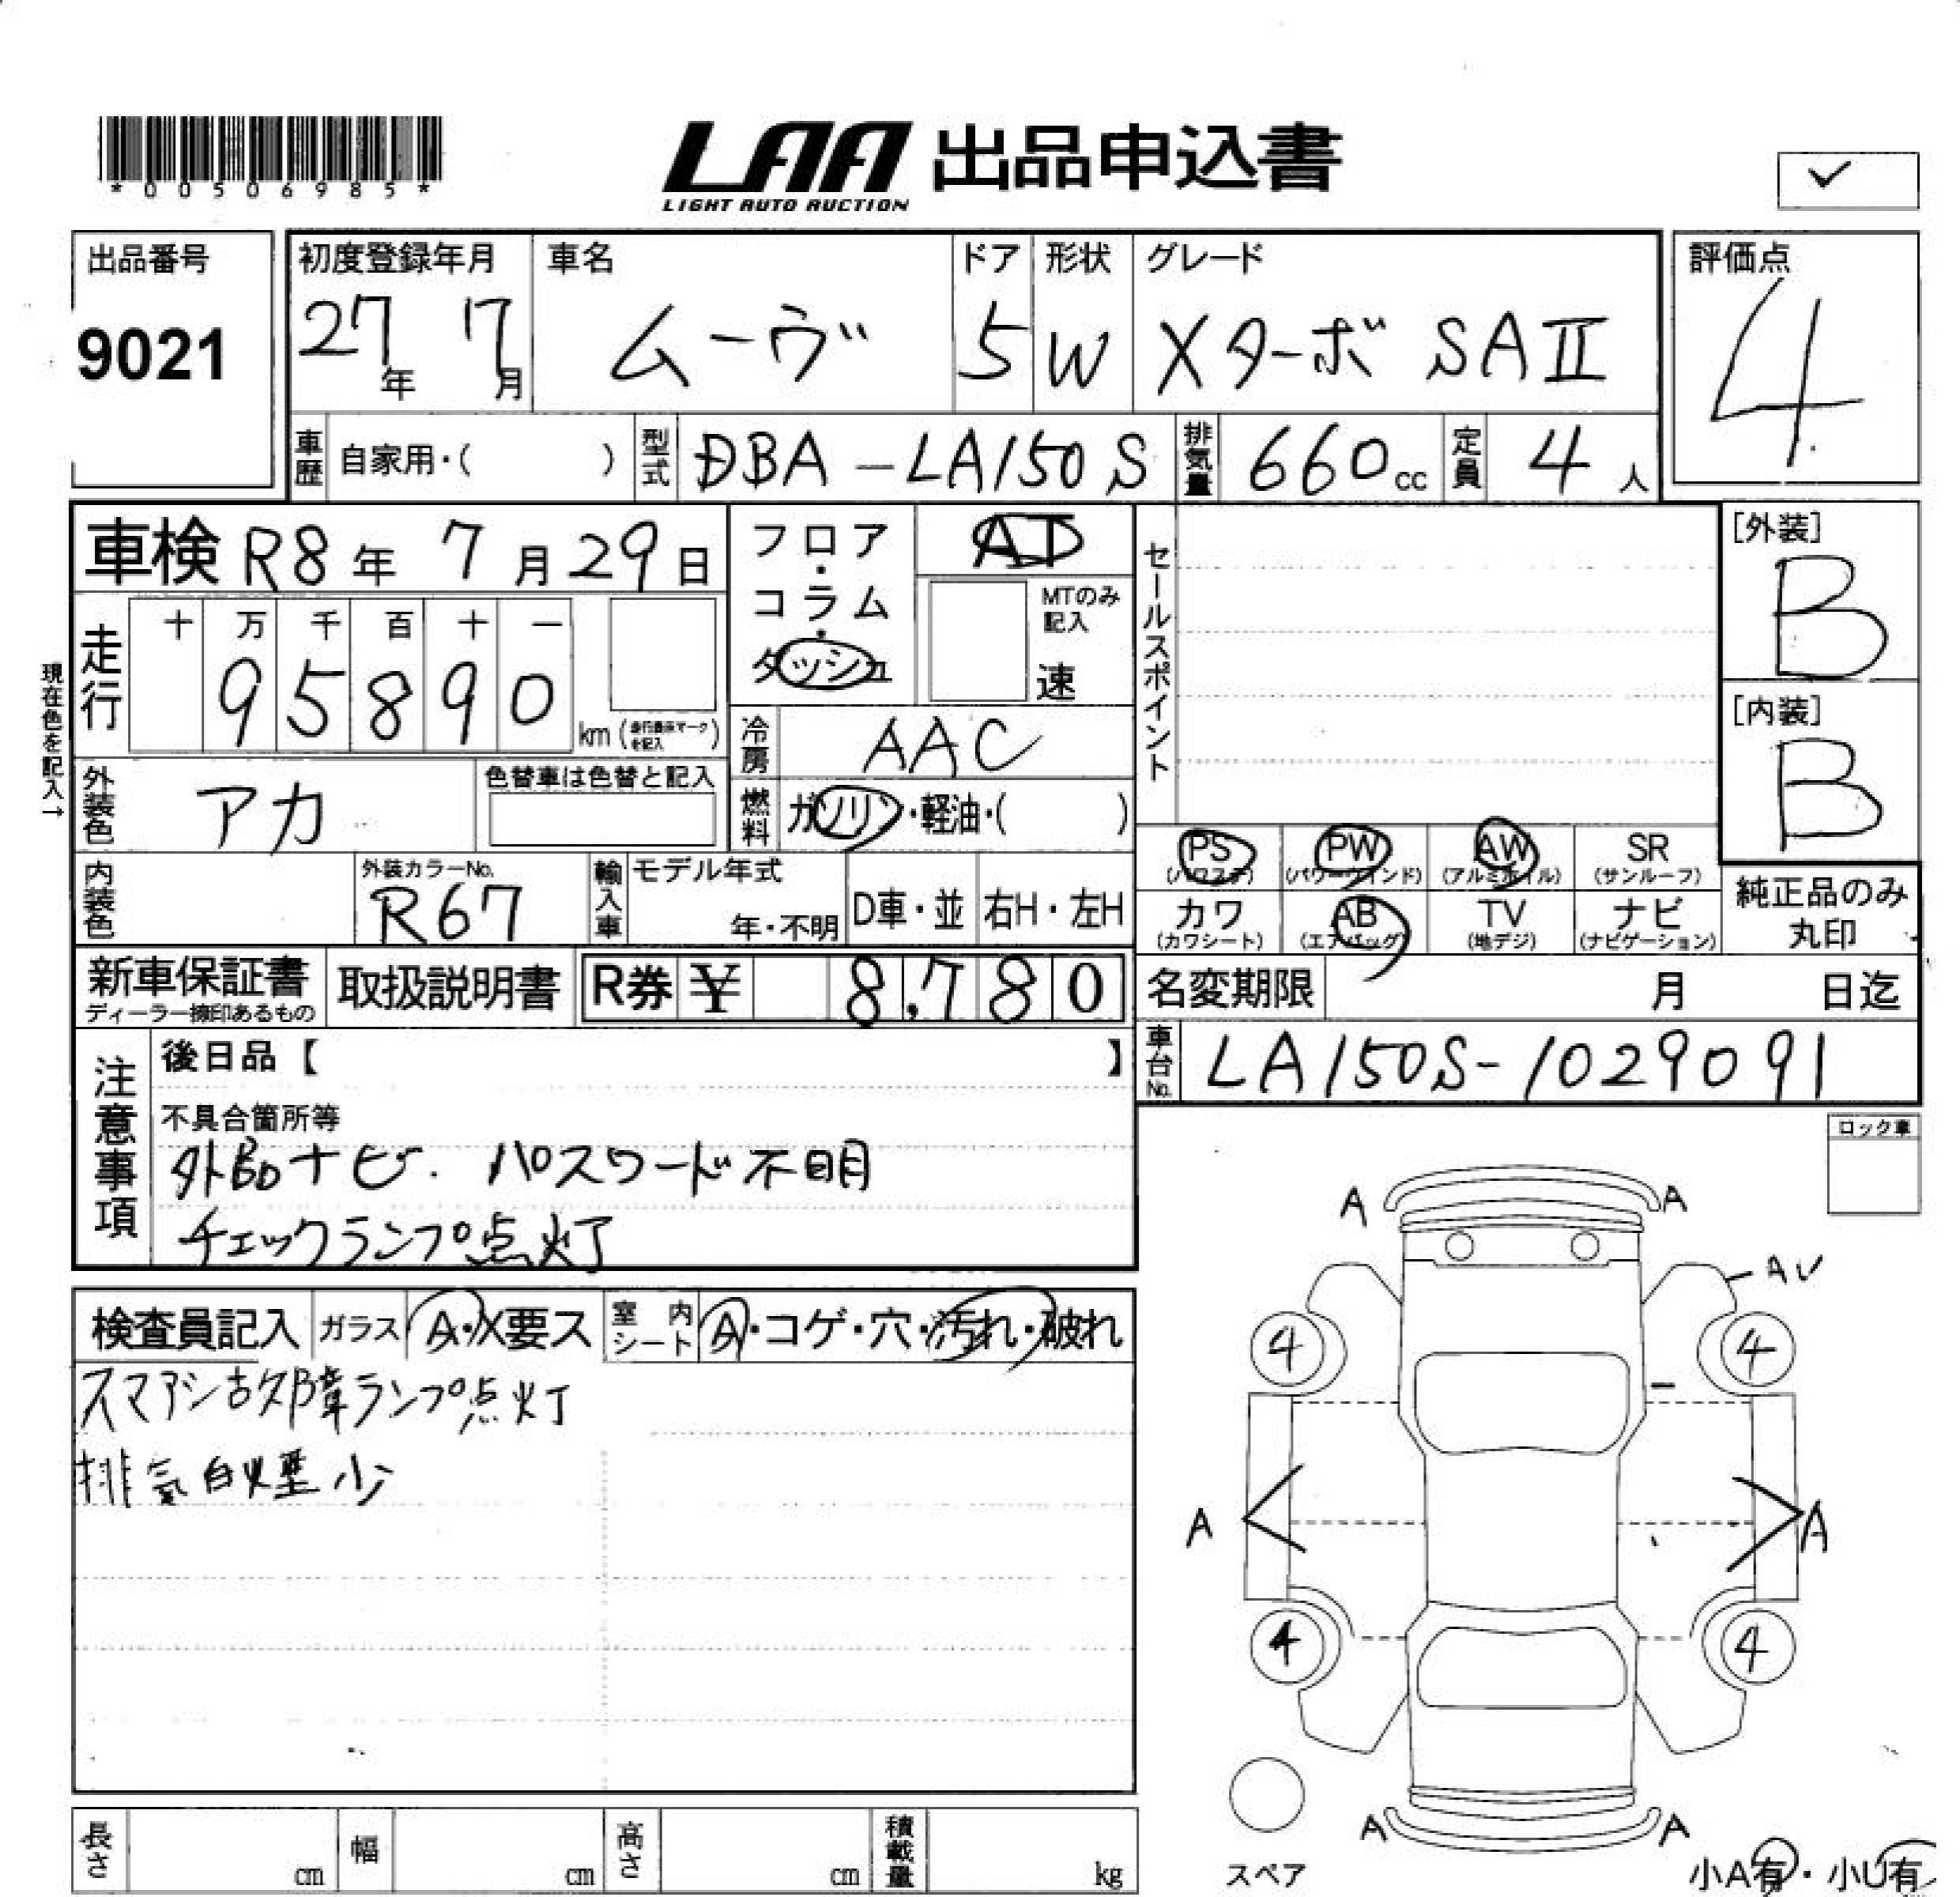 *00506985*
LAA 出品申込書
LIGHT AUTO AUCTION
✓
出品番号
9021
初度登録年月
27年 7月
車名
ムーヴ
ドア
5
形状
W
グレード
Xターボ SAⅡ
評価点
4
車歴 自家用・( )
型式 DBA-LA150S
排気量 660cc
定員 4人
車検 R8年 7月29日
フロア・コラム・ダッシュ
AT
MTのみ記入
速
セールスポイント
[外装]
B
[内装]
B
現在色を記入→
走行
十 万 千 百 十 一
9 5 8 9 0
km (走行距離マークを記入)
冷房 AAC
外装色 アカ
色替車は色替と記入
燃料 ガソリン・軽油・( )
内装色
外装カラーNo.
R67
輸入車
モデル年式
年・不明
D車・並
右H・左H
PS (パワステ)
PW (パワーウインド)
AW (アルミホイル)
SR (サンルーフ)
カワ (カワシート)
AB (エアバッグ)
TV (地デジ)
ナビ (ナビゲーション)
純正品のみ丸印
新車保証書
ディーラー捺印あるもの
取扱説明書
R券 ¥ 8,780
名変期限 月 日迄
車台No. LA150S-1029091
注意事項
後日品【 】
不具合箇所等
外品ナビ. パスワード不明
チェックランプ点灯
ロック車
検査員記入
ガラス A・X要ス
室内シート A・コゲ・穴・汚れ・破れ
スマアシ故障ランプ点灯
排気白煙少
A A
AV
4 4
A A
4 4
A A
スペア
小A有・小U有
長さ cm
幅 cm
高さ cm
積載量 kg